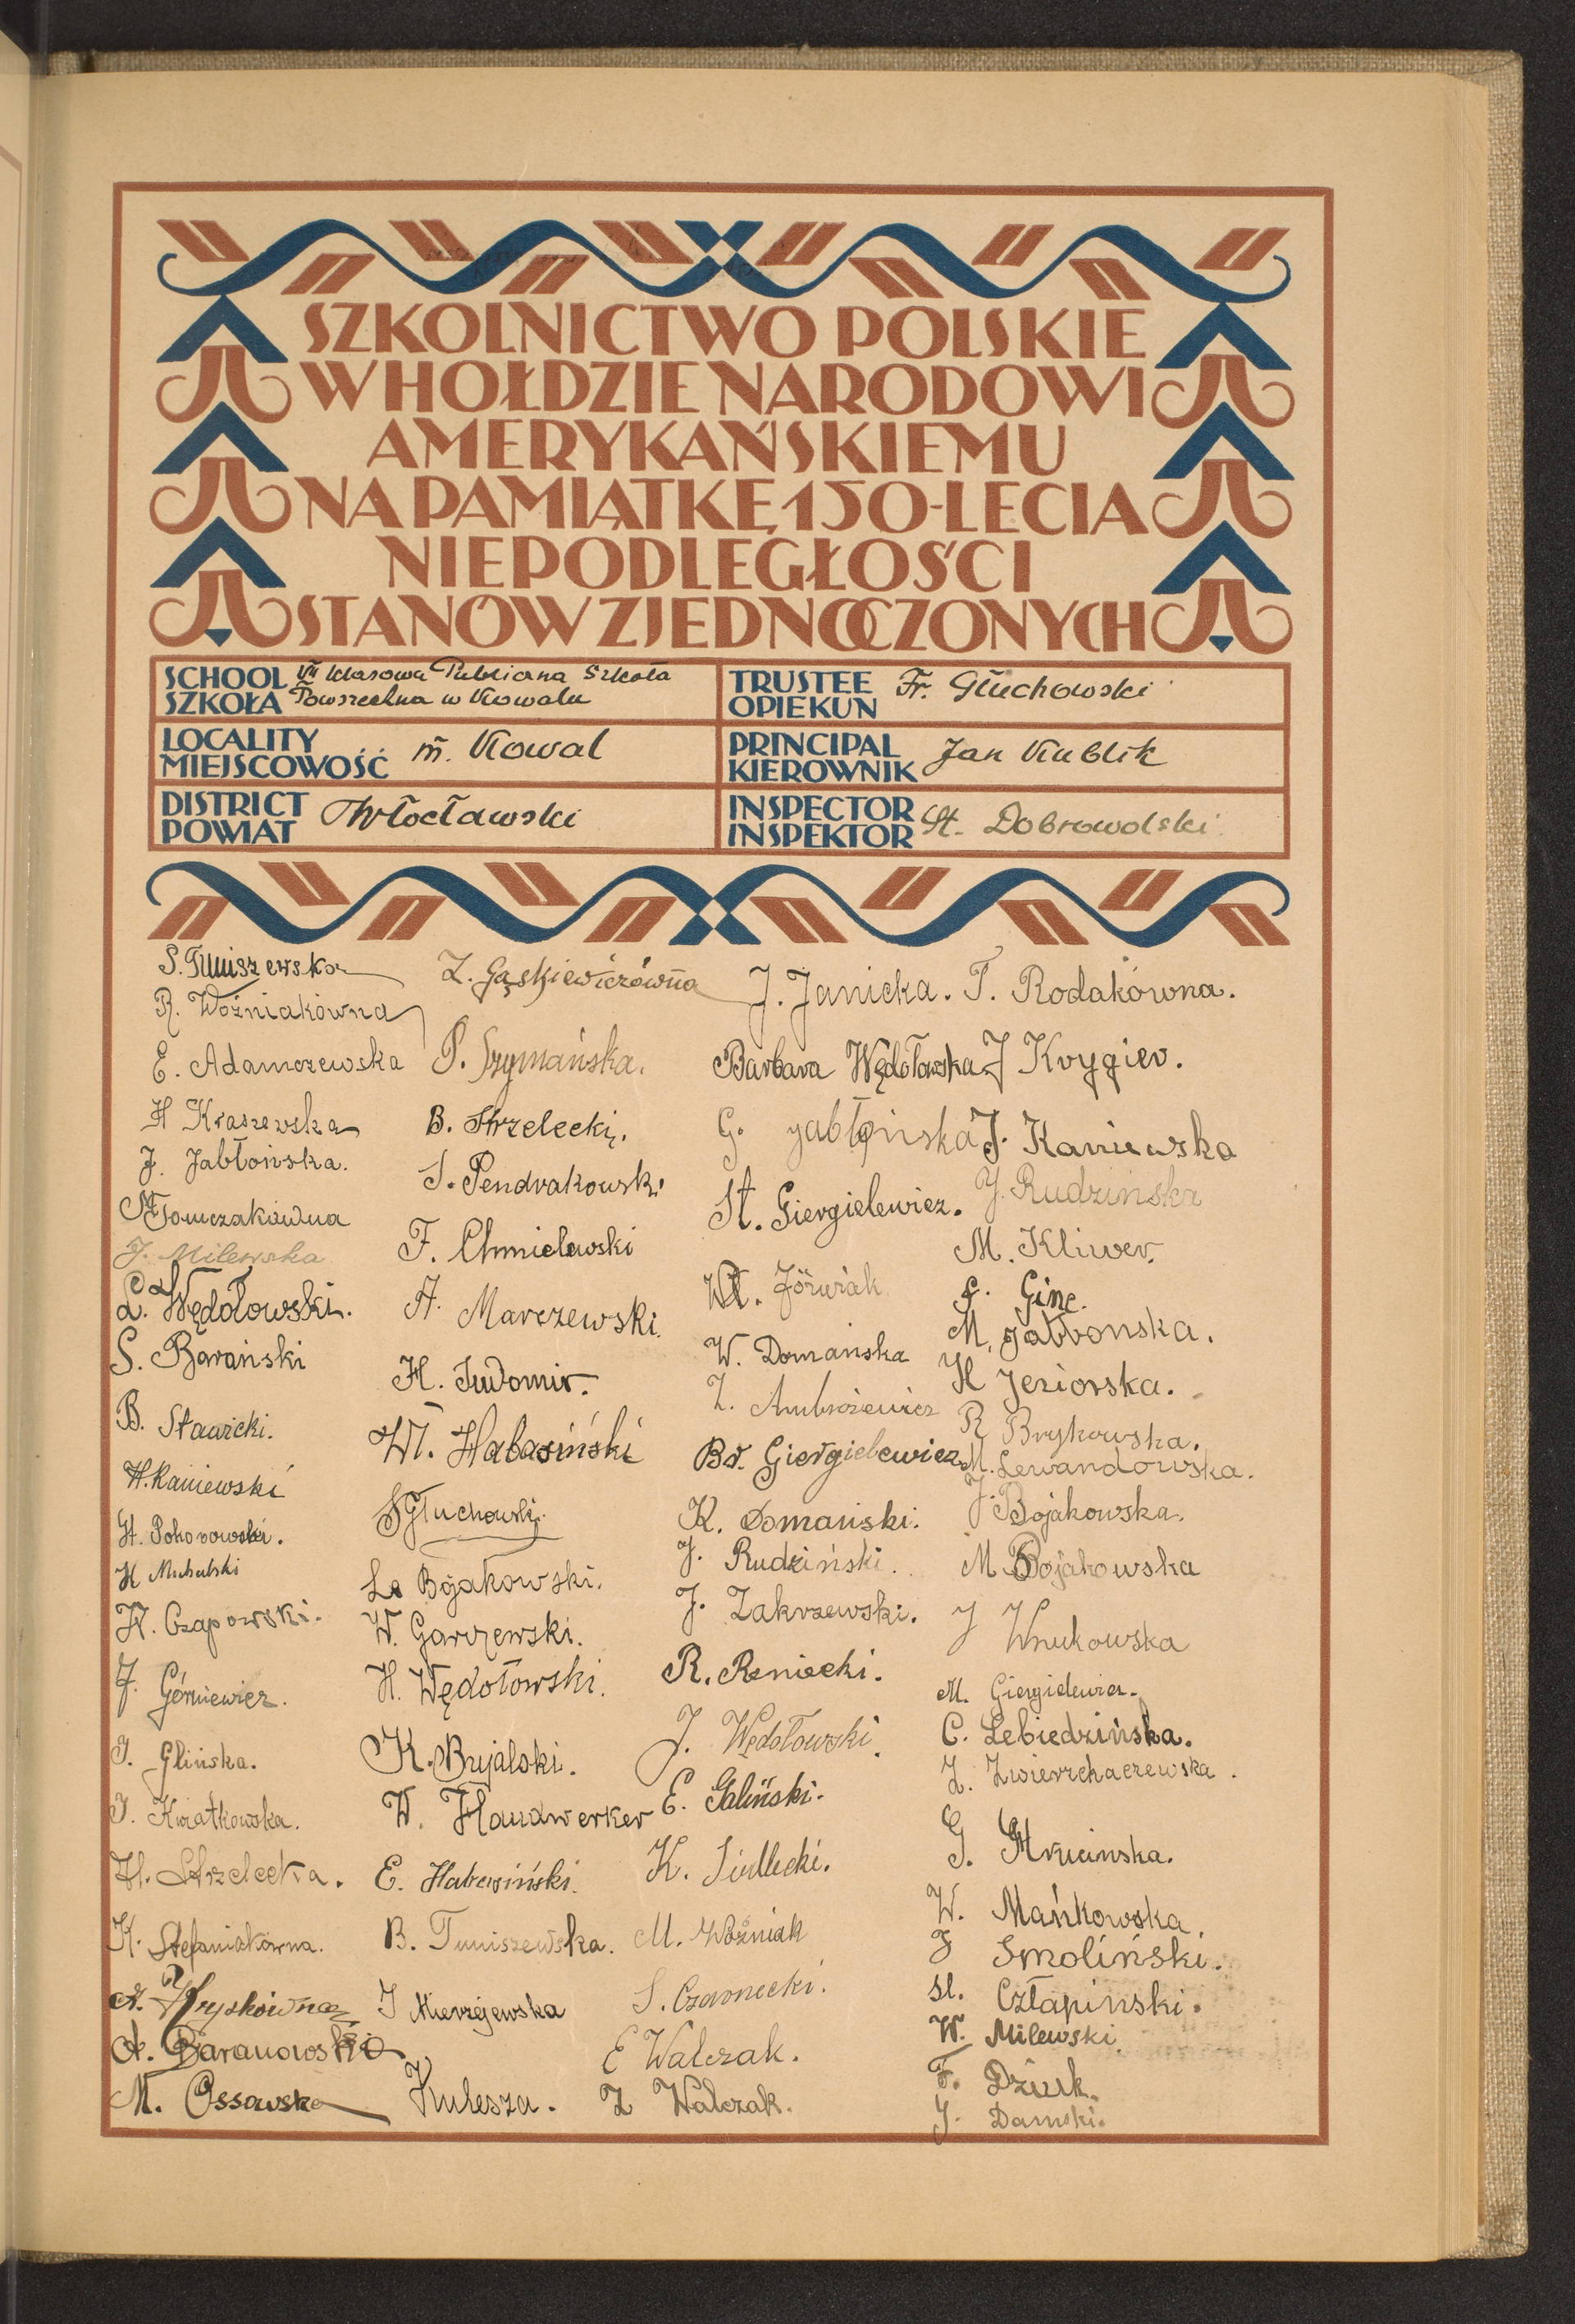 SZKOLNICTWO POLSKIE
W HOŁDZIE NARODOWI
AMERYKAŃSKIEMU
NA PAMIĄTKĘ 150-LECIA
NIEPODLEGŁOŚCI
STANÓW ZJEDNOCZONYCH
SCHOOL SZKOŁA VII klasowa Publiczna Szkoła
Powszechna w Kowalu
TRUSTEE OPIEKUN Fr. Głuchowski
LOCALITY MIEJSCOWOŚĆ m. Kowal
PRINCIPAL KIEROWNIK Jan Kublik
DISTRICT POWIAT Włocławski
INSPECTOR INSPEKTOR St. Dobrowolski
S. Tuniszewska
R. Woźniakówna
E. Adamczewska
H Kraszewska
J. Jabłońska.
M Tomczakówna
J. Milewska
L. Wędołowski.
S. Barański
B. Stawicki.
H. Kaniewski
H. Michalski
K. Czapowski.
J. Górniewicz.
J. Glińska.
J. Kwiatkowska.
H. Strzelecka.
K. Stefaniakówna.
A. Baranowska
M. Ossowska
Z. Gąskiewiczówna
P. Szymańska.
B. Strzelecki.
S. Pendrakowski
F. Chmielewski
A. Marczewski.
H. Judomir.
Wł. Habasiński
S Głuchowski.
L. Bojakowski.
W. Garczewski.
H. Wędołowski.
K. Bujalski.
W. Handwerker
E. Habasiński.
B. Tuniszewska.
J Mierzejewska
Kulesza.
J. Janicka.
Barbara Wędołowska
G. Jabłońska
St. Giergielewicz.
Wł. Jóźwiak
W. Domańska
Z. Ambroziewicz
Br. Giergielewicz
K. Domański.
J. Rudziński.
J. Zakrzewski.
R. Reniecki.
J. Wędołowski.
E. Galiński.
K. Siedlecki.
M. Woźniak
S. Czarnecki.
E Walczak.
Z Walczak.
T. Rodakówna.
J Krygier.
J. Kaniewska
J. Rudzińska
M. Kliwer.
F. Ginc.
M. Jabłonska.
H Jeziorska.
R Brykowska.
M. Lewandowska.
J. Bojakowska.
M Bojakowska
J Wnukowska
M. Giergielewicz.
C. Lebiedzińska.
Z. Zwierzchaczewska.
W. Mańkowska.
J Smoliński.
Sl. Człapiński.
W. Milewski.
F. Dziuk.
J. Damski.